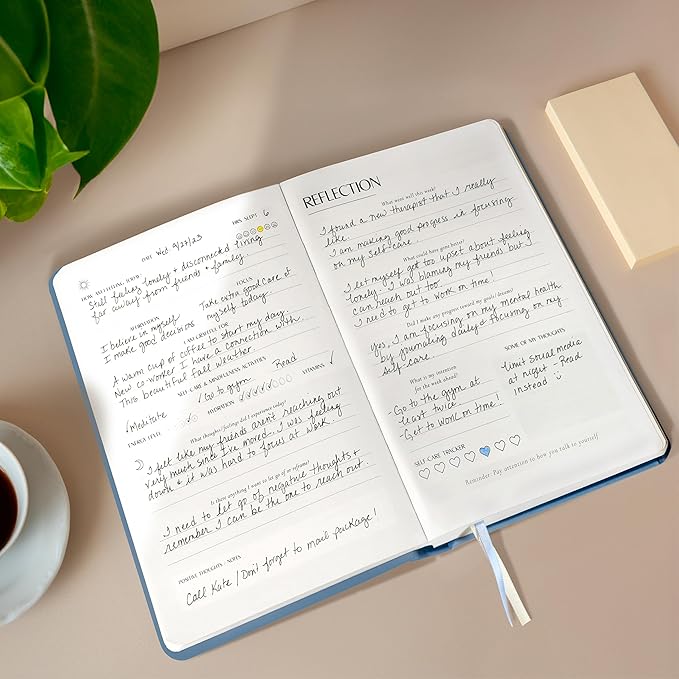 DATE Wed 9/27/23
HRS. SLEPT 6
HOW AM I FEELING TODAY?
Still feeling lonely + disconnected living
far away from friends + family.
AFFIRMATION
I believe in myself
I make good decisions
FOCUS
Take extra good care of
myself today.
I AM GRATEFUL FOR
A warm cup of coffee to start my day.
New co-worker I have a connection with
This beautiful fall weather.
SELF CARE & MINDFULNESS ACTIVITIES
✓Meditate
✓Go to gym
Read
HYDRATION
VITAMINS ✓
ENERGY LEVEL
What thoughts/feelings did I experience today?
I felt like my friends aren't reaching out
very much since I've moved. I was feeling
down & it was hard to focus at work.
Is there anything I want to let go of or reframe?
I need to let go of negative thoughts +
remember I can be the one to reach out.
POSITIVE THOUGHTS + NOTES
Call Kate / Don't forget to mail package!
REFLECTION
What went well this week?
I found a new therapist that I really
like.
I am making good progress in focusing
on my self-care.
What could have gone better?
I let myself get too upset about feeling
lonely. I was blaming my friends but I
can reach out too.
I need to get to work on time!
Did I make any progress toward my goals/dreams?
Yes, I am focusing on my mental health
by journaling daily & focusing on my
self-care.
What is my intention
for the week ahead?
-Go to the gym at
least twice
-Get to work on time!
SOME OF MY THOUGHTS
Limit social media
at night - Read
instead
SELF CARE TRACKER
Reminder: Pay attention to how you talk to yourself